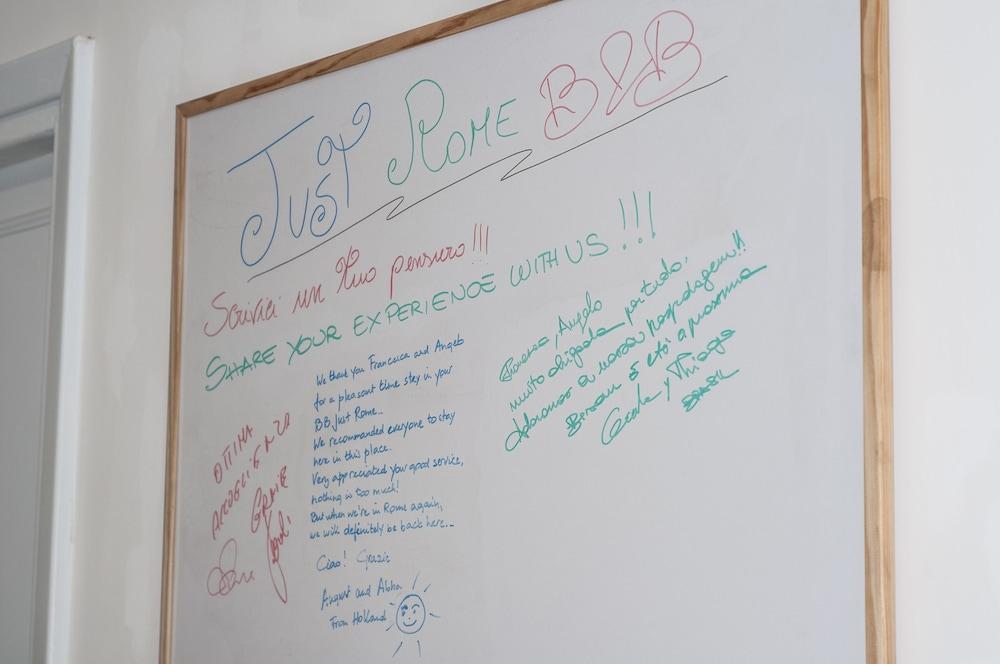 Just Rome B&B
Scrivici un tuo pensiero!!!
SHARE YOUR EXPERIENCE WITH US!!!
OTTIMA
ACCOGLIENZA
GRAZIE
We thank you Francesca and Angelo
for a pleasant time stay in your
BB Just Rome...
We recommanded everyone to stay
here in this place.
Very appreciated your good service,
nothing is too much!
But when we're in Rome again,
we will definitely be back here...
Ciao! Grazie
August and
From Holland
Francesca, Angelo
muito obrigada por tudo.
Adoramos a nossa hospedagem!!
e até a próxima
y Thiago
BRASIL